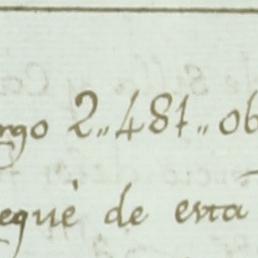 ngo 2,,481,,06
egué de esta